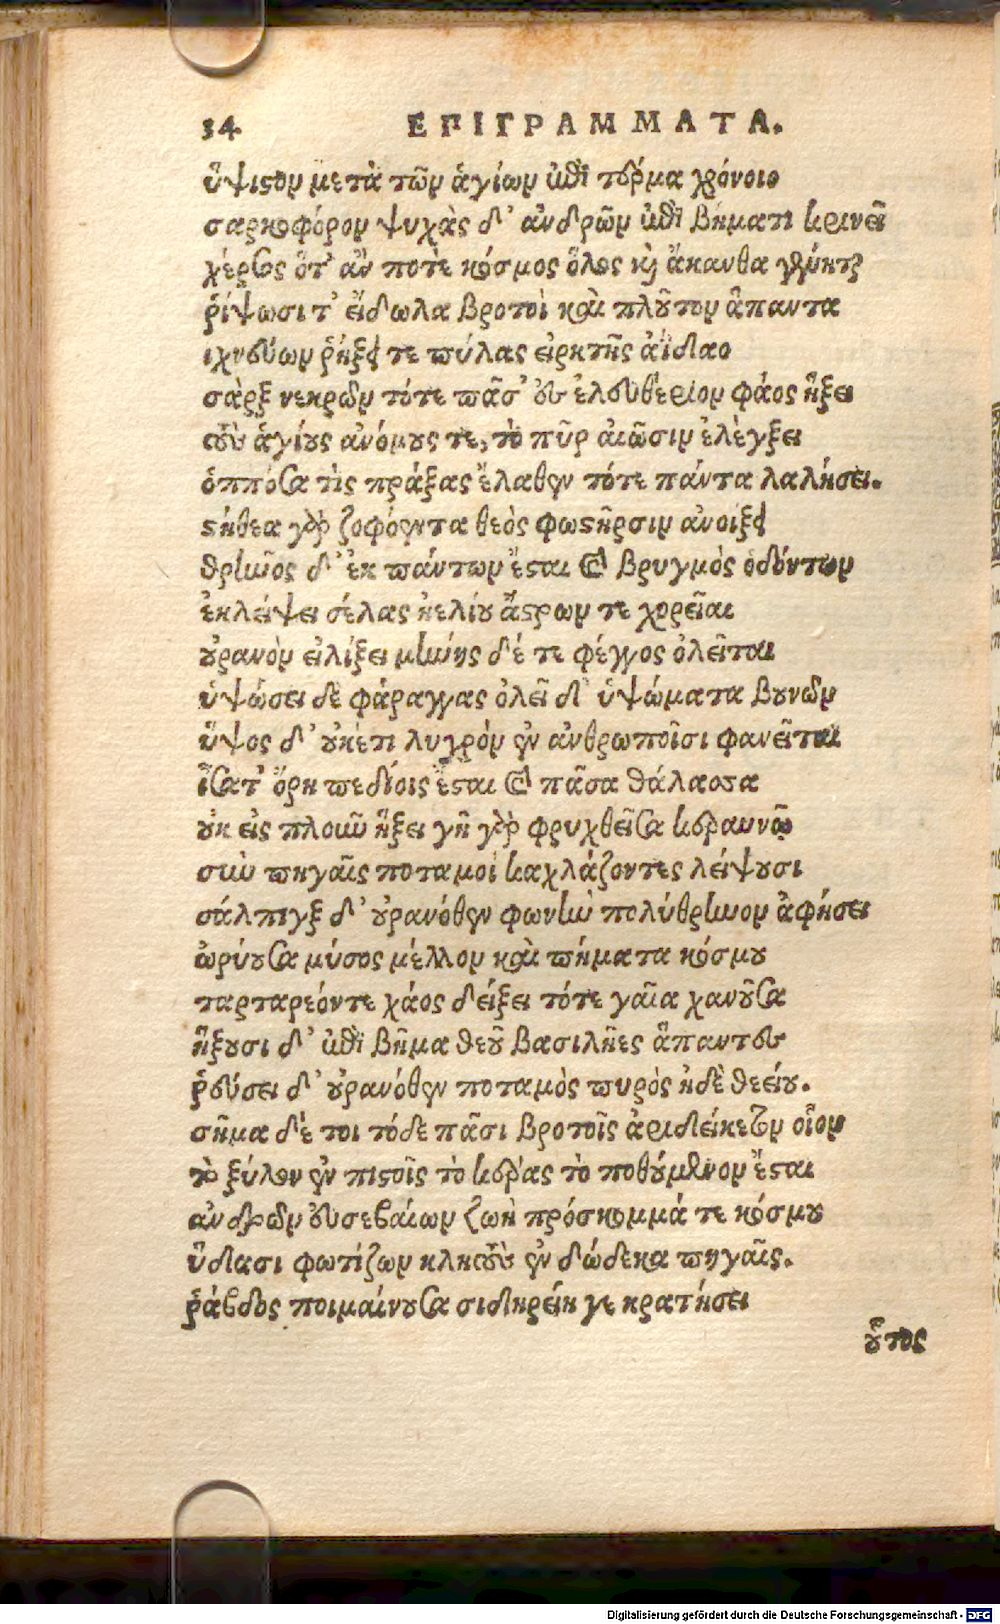 34 ΕΠΙΓΡΑΜΜΑΤΑ.
ὕψιστον μετὰ τῶν ἁγίων ἐπὶ τέρμα χρόνοιο
σαρκοφόρον ψυχὰς δ᾽ ἀνδρῶν ἐπὶ βήματι κρινεῖ
χέρσος ὅτ᾽ ἂν ποτὲ κόσμος ὅλος καὶ ἄκανθα γένηται
ῥίψωσι τ᾽ εἴδωλα βροτοὶ καὶ πλοῦτον ἅπαντα
ιχνεύων ῥήξει τε πύλας εἱρκτῆς ἀΐδαο
σὰρξ νεκρῶν τότε πᾶσ᾽ ἐς ἐλευθέριον φάος ἥξει
τοὺς ἁγίους ἀνόμους τε, τὸ πῦρ αἰῶσιν ἐλέγξει
ὁππόσα τὶς πράξας ἔλαθεν τότε πάντα λαλήσει.
στήθεα γὰρ ζοφόεντα θεὸς φωστῆρσιν ἀνοίξει
θρῆνος δ᾽ ἐκ πάντων ἔσται καὶ βρυγμὸς ὀδόντων
ἐκλείψει σέλας ἠελίου ἄστρων τε χορεῖαι
οὐρανὸν εἱλίξει μήνης δέ τε φέγγος ὀλεῖται
ὑψώσει δὲ φάραγγας ὀλεῖ δ᾽ ὑψώματα βουνῶν
ὕψος δ᾽ οὐκέτι λυγρὸν ἐν ἀνθρωποῖσι φανεῖται
ἶσατ᾽ ὄρη πεδίοις ἔσται καὶ πᾶσα θάλασσα
οὐκ εἰς πλοῦν ἥξει γῆ γὰρ φρυχθεῖσα κεραυνῷ
σὺν πηγαῖς ποταμοὶ καχλάζοντες λείψουσι
σάλπιγξ δ᾽ οὐρανόθεν φωνὴν πολύθρηνον ἀφήσει
ὠρύουσα μύσος μέλλον καὶ πήματα κόσμου
ταρταρεόντε χάος δείξει τότε γαῖα χανοῦσα
ἥξουσι δ᾽ ἐπὶ βῆμα θεοῦ βασιλῆες ἅπαντες
ῥεύσει δ᾽ οὐρανόθεν ποταμὸς πυρὸς ἠδὲ θεείου.
σῆμα δέ τοι τόδε πᾶσι βροτοῖς ἀριδείκετον οἷον
τὸ ξύλον ἐν πιστοῖς τὸ κέρας τὸ ποθούμενον ἔσται
ἀνδρῶν εὐσεβαίων ζωὴ πρόσκομμά τε κόσμου
ὕδασι φωτίζων κλητοὺς ἐν δώδεκα πηγαῖς.
ῥάβδος ποιμαίνουσα σιδηρείη γε κρατήσει
οὗτος
Digitalisierung gefördert durch die Deutsche Forschungsgemeinschaft - DFG